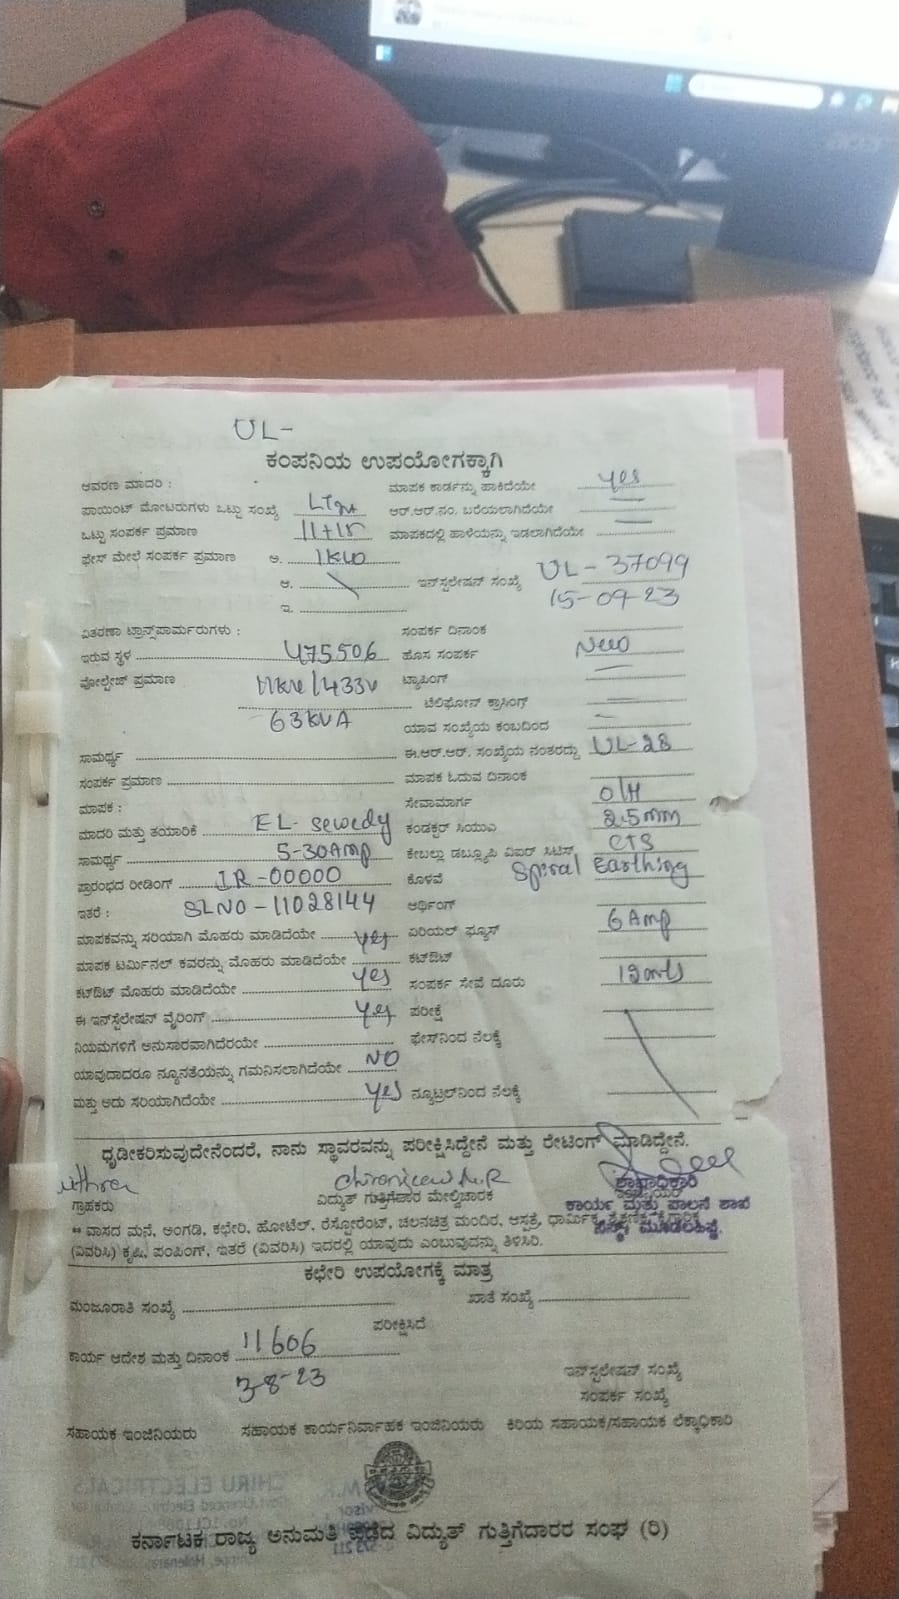 UL-
ಕಂಪನಿಯ ಉಪಯೋಗಕ್ಕಾಗಿ
ಆವರಣ ಮಾದರಿ : ಮಾಪಕ ಕಾರ್ಡನ್ನು ಹಾಕಿದೆಯೇ yes
ಪಾಯಿಂಟ್ ಮೋಟರುಗಳು ಒಟ್ಟು ಸಂಖ್ಯೆ ಆರ್.ಆರ್.ನಂ. ಬರೆಯಲಾಗಿದೆಯೇ
ಒಟ್ಟು ಸಂಪರ್ಕ ಪ್ರಮಾಣ ಮಾಪಕದಲ್ಲಿ ಹಾಳೆಯನ್ನು ಇಡಲಾಗಿದೆಯೇ
ಫೇಸ್ ಮೇಲೆ ಸಂಪರ್ಕ ಪ್ರಮಾಣ ಅ. 1KW
ಆ. ಇನ್‌ಸ್ಟಲೇಷನ್ ಸಂಖ್ಯೆ UL-37099
ಇ. 15-09-23
ವಿತರಣಾ ಟ್ರಾನ್ಸ್‌ಫಾರ್ಮರುಗಳು : ಸಂಪರ್ಕ ದಿನಾಂಕ
ಇರುವ ಸ್ಥಳ 475506 ಹೊಸ ಸಂಪರ್ಕ New
ವೋಲ್ಟೇಜ್ ಪ್ರಮಾಣ 11KV/433V ಟ್ಯಾಪಿಂಗ್
ಟೆಲಿಫೋನ್ ಕ್ರಾಸಿಂಗ್
63KVA ಯಾವ ಸಂಖ್ಯೆಯ ಕಂಬದಿಂದ
ಸಾಮರ್ಥ್ಯ ಈ.ಆರ್.ಆರ್. ಸಂಖ್ಯೆಯ ನಂತರದ್ದು UL-28
ಸಂಪರ್ಕ ಪ್ರಮಾಣ ಮಾಪಕ ಓದುವ ದಿನಾಂಕ
ಮಾಪಕ : ಸೇವಾಮಾರ್ಗ O/H
ಮಾದರಿ ಮತ್ತು ತಯಾರಿಕೆ EL- sewedy ಕಂಡಕ್ಟರ್ ಸಿಯುಎ 2.5mm
ಸಾಮರ್ಥ್ಯ 5-30Amp ಕೇಬಲ್ಲು ಡಬ್ಲ್ಯೂಪಿ ವಿಐರ್ ಸಿಟಿಸ್ CTS
ಪ್ರಾರಂಭದ ರೀಡಿಂಗ್ IR-00000 ಕೊಳವೆ Spiral Earthing
ಇತರೆ : SLNO-11028144 ಆರ್ಥಿಂಗ್
ಮಾಪಕವನ್ನು ಸರಿಯಾಗಿ ಮೊಹರು ಮಾಡಿದೆಯೇ yes ಏರಿಯಲ್ ಫ್ಯೂಸ್ 6 Amp
ಮಾಪಕ ಟರ್ಮಿನಲ್ ಕವರನ್ನು ಮೊಹರು ಮಾಡಿದೆಯೇ ಕಟ್‌ಔಟ್
ಕಟ್‌ಔಟ್ ಮೊಹರು ಮಾಡಿದೆಯೇ yes ಸಂಪರ್ಕ ಸೇವೆ ದೂರು
ಈ ಇನ್‌ಸ್ಟೆಲೇಷನ್ ವೈರಿಂಗ್ yes ಪರೀಕ್ಷೆ
ನಿಯಮಗಳಿಗೆ ಅನುಸಾರವಾಗಿದೆರಯೇ ಫೇಸ್‌ನಿಂದ ನೆಲಕ್ಕೆ
ಯಾವುದಾದರೂ ನ್ಯೂನತೆಯನ್ನು ಗಮನಿಸಲಾಗಿದೆಯೇ NO
ಮತ್ತು ಅದು ಸರಿಯಾಗಿದೆಯೇ yes ನ್ಯೂಟ್ರಲ್‌ನಿಂದ ನೆಲಕ್ಕೆ
ಧೃಡೀಕರಿಸುವುದೇನೆಂದರೆ, ನಾನು ಸ್ಥಾವರವನ್ನು ಪರೀಕ್ಷಿಸಿದ್ದೇನೆ ಮತ್ತು ರೇಟಿಂಗ್ ಮಾಡಿದ್ದೇನೆ.
ಗ್ರಾಹಕರು ವಿದ್ಯುತ್ ಗುತ್ತಿಗೆದಾರ ಮೇಲ್ವಿಚಾರಕ
ಶಾಖಾಧಿಕಾರಿ
ಕಾರ್ಯ ಮತ್ತು ಪಾಲನೆ ಶಾಖೆ
** ವಾಸದ ಮನೆ, ಅಂಗಡಿ, ಕಛೇರಿ, ಹೋಟೆಲ್, ರೆಸ್ಟೋರೆಂಟ್, ಚಲನಚಿತ್ರ ಮಂದಿರ, ಆಸ್ಪತ್ರೆ, ಧಾರ್ಮಿಕ,
(ವಿವರಿಸಿ) ಕೃಷಿ, ಪಂಪಿಂಗ್, ಇತರೆ (ವಿವರಿಸಿ) ಇದರಲ್ಲಿ ಯಾವುದು ಎಂಬುವುದನ್ನು ತಿಳಿಸಿರಿ.
ಕಛೇರಿ ಉಪಯೋಗಕ್ಕೆ ಮಾತ್ರ
ಮಂಜೂರಾತಿ ಸಂಖ್ಯೆ ಖಾತೆ ಸಂಖ್ಯೆ
ಪರೀಕ್ಷಿಸಿದೆ
ಕಾರ್ಯ ಆದೇಶ ಮತ್ತು ದಿನಾಂಕ 11606
3-8-23
ಇನ್‌ಸ್ಟಲೇಷನ್ ಸಂಖ್ಯೆ
ಸಂಪರ್ಕ ಸಂಖ್ಯೆ
ಸಹಾಯಕ ಇಂಜಿನಿಯರು ಸಹಾಯಕ ಕಾರ್ಯನಿರ್ವಾಹಕ ಇಂಜಿನಿಯರು ಕಿರಿಯ ಸಹಾಯಕ/ಸಹಾಯಕ ಲೆಕ್ಕಾಧಿಕಾರಿ
ಕರ್ನಾಟಕ ರಾಜ್ಯ ಅನುಮತಿ ಪಡೆದ ವಿದ್ಯುತ್ ಗುತ್ತಿಗೆದಾರರ ಸಂಘ (ರಿ)